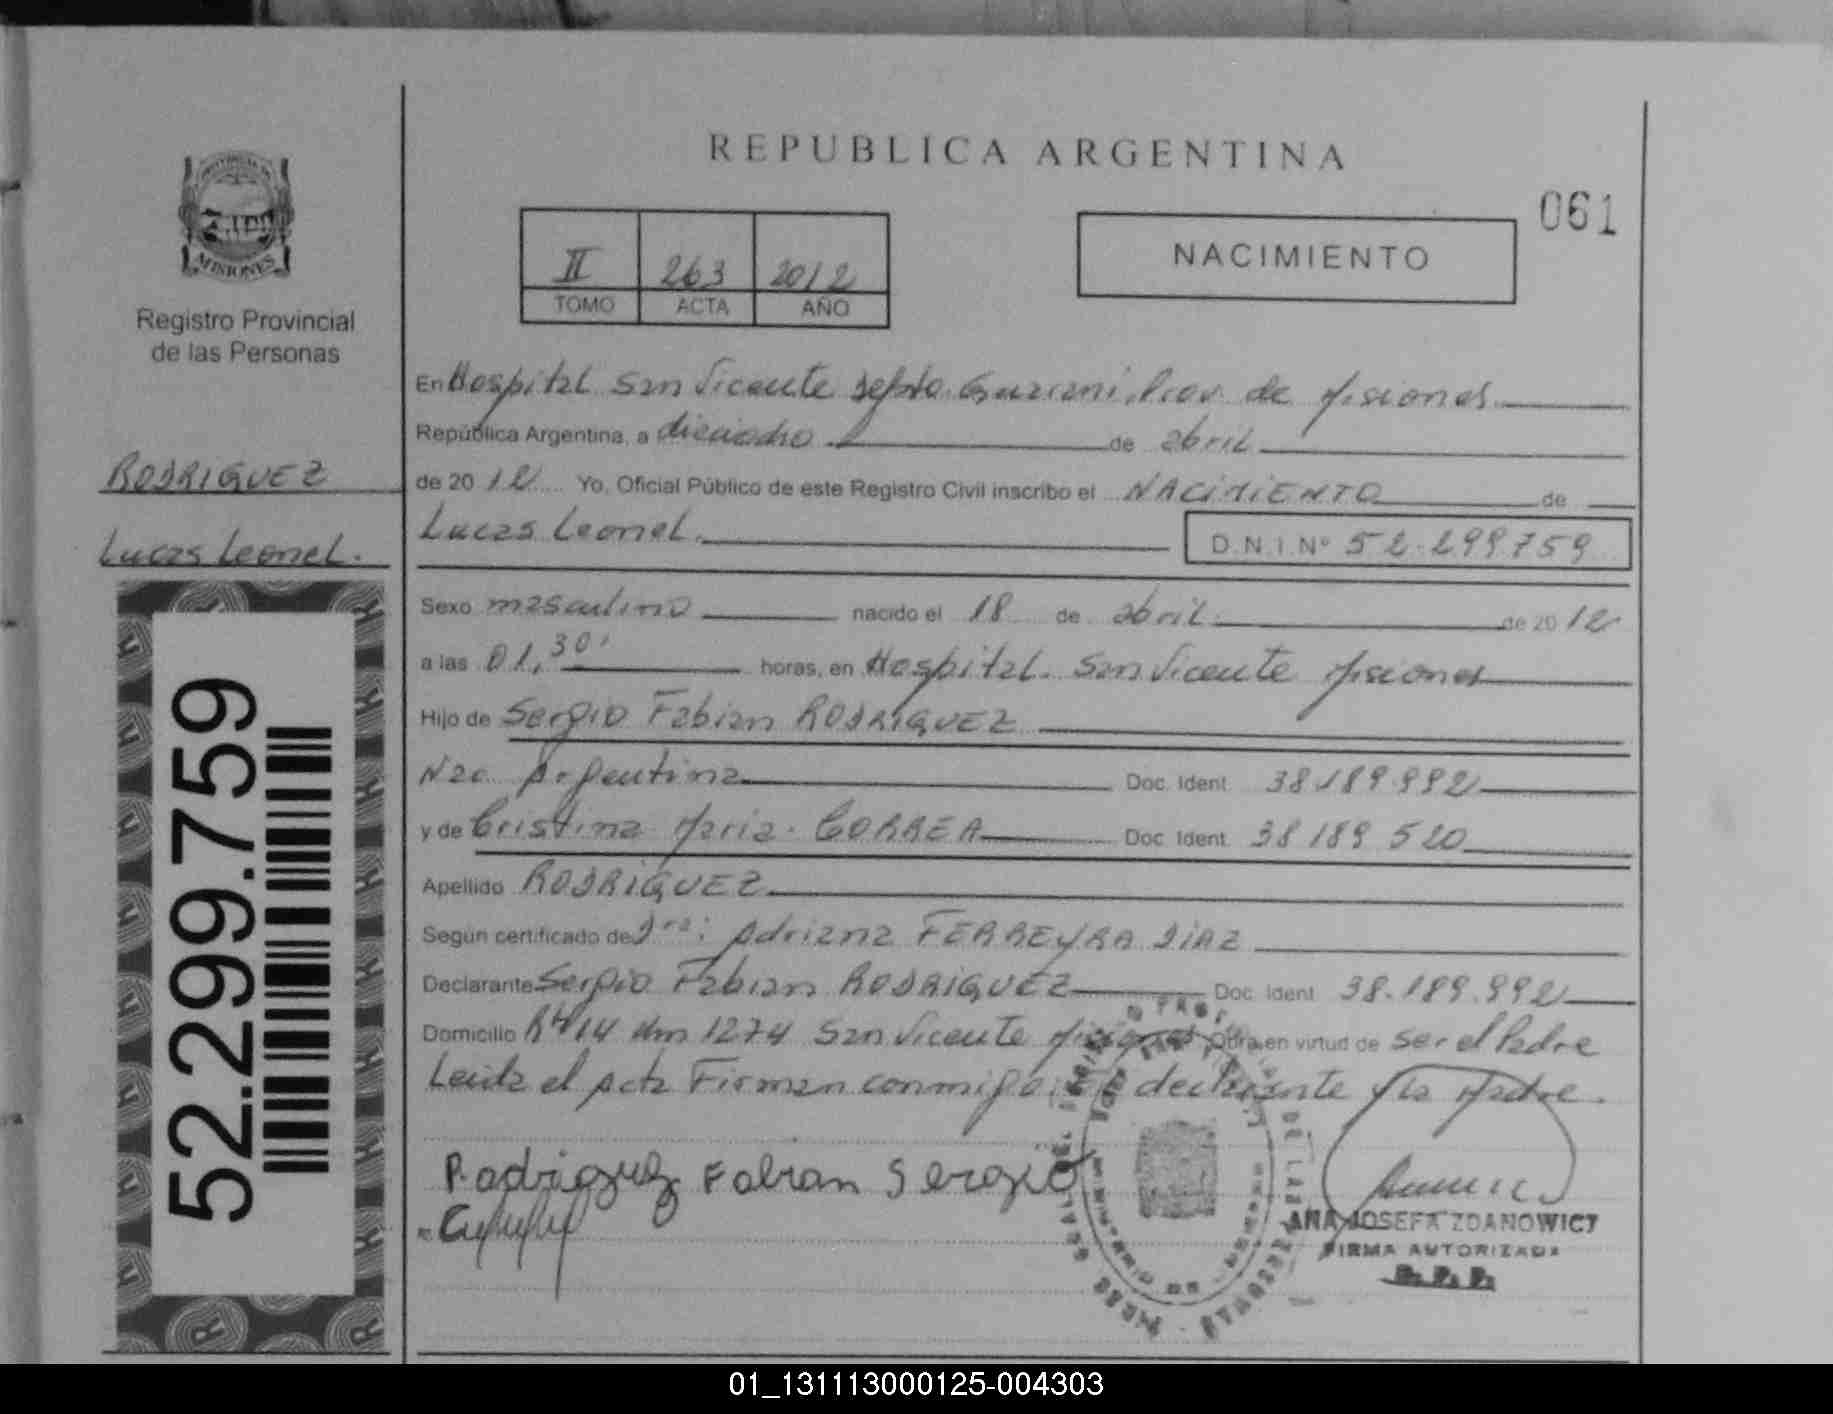 REPUBLICA ARGENTINA
061
MISIONES
Registro Provincial
de las Personas
RODRIGUEZ
Lucas Leonel.
52.299.759
II 263 2012
TOMO ACTA AÑO
NACIMIENTO
En Hospital San Vicente Depto. Guarani, Prov. de Misiones
República Argentina, a dieciocho de abril
de 2012 Yo, Oficial Público de este Registro Civil inscribo el NACIMIENTO de
Lucas Leonel. D.N.I.Nº 52.299759
Sexo masculino nacido el 18 de abril de 2012
a las 01,30' horas, en Hospital San Vicente Misiones
Hijo de Sergio Fabian RODRIGUEZ
Nac. Argentina Doc. Ident. 38.189.992
y de Cristina Maria CORREA Doc. Ident. 38 189 520
Apellido RODRIGUEZ
Según certificado de Dra: Adriana FERREYRA DIAZ
Declarante Sergio Fabian RODRIGUEZ Doc. Ident. 38.189.992
Domicilio 14 Km 1274 San Vicente Misiones Obra en virtud de ser el Padre
Leida el Acta Firman conmigo: el declarante y la Madre.
Rodriguez Fabian Sergio
ANA JOSEFA ZDANOWICZ
FIRMA AUTORIZADA
R. P. P.
01_131113000125-004303